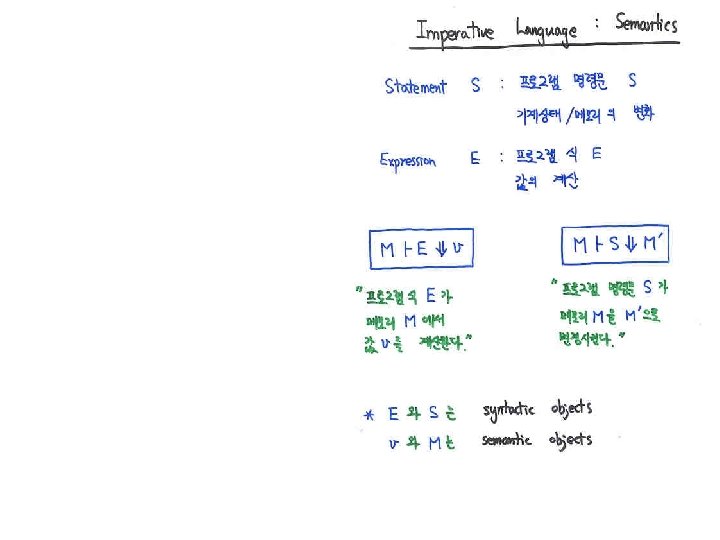 Imperative Language : Semantics
Statement S : 프로그램 명령문 S
기계상태/메모리의 변화
Expression E : 프로그램 식 E
값의 계산
M ⊢ E ⇓ v
M ⊢ S ⇓ M′
"프로그램 식 E가
메모리 M에서
값 v을 계산한다."
"프로그램 명령문 S가
메모리 M을 M′으로
변경시킨다."
* E와 S는 syntactic objects
v와 M는 semantic objects